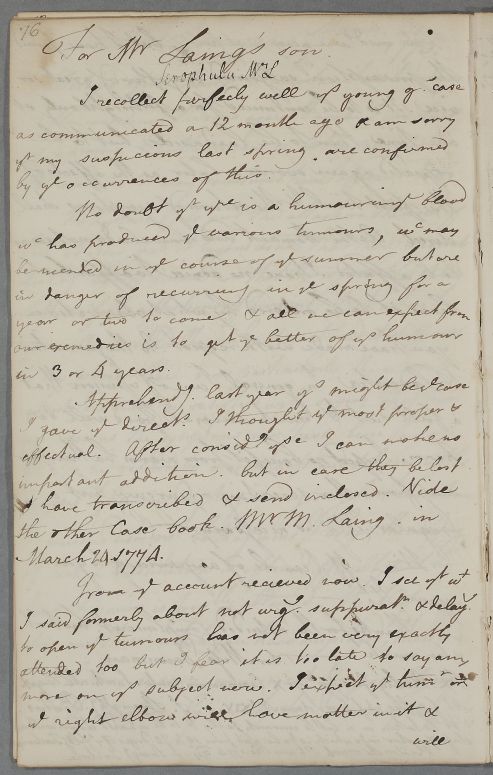 76
For Mr Laing's son
Scrophula Mr L
I recollect perfectly well ys young gs. case
as communicated a 12 month ago & am sorry
yt my suspicions last spring are confirmed
by ye occurrences of this.
No doubt yt yre is a humour in ye blood
wc has produced ye various tumours, wc may
be mended in ye course of ye summer but are
in danger of recurring in ye spring for a
year or two to come & all we can expect from
our remedies is to get ye better of ys humour
in 3 or 4 years.
Apprehendg. last year ys might be ye case
I gave ye directs. I thought ye most proper &
effectual. After considg. yse I can make no
important addition. but in case they be lost
I have transcribed & send inclosed. Vide
the other Case book. Mr M. Laing. in
March 24 1774.
From ye account recieved now. I see yt wt
I said formerly about not urgg. suppuratn. & delayg.
to open ye tumours has not been very exactly
attended too but I fear it is too late to say any
more on ys subject now. I expect ye tumr. on
ye right elbow will have matter in it &
will